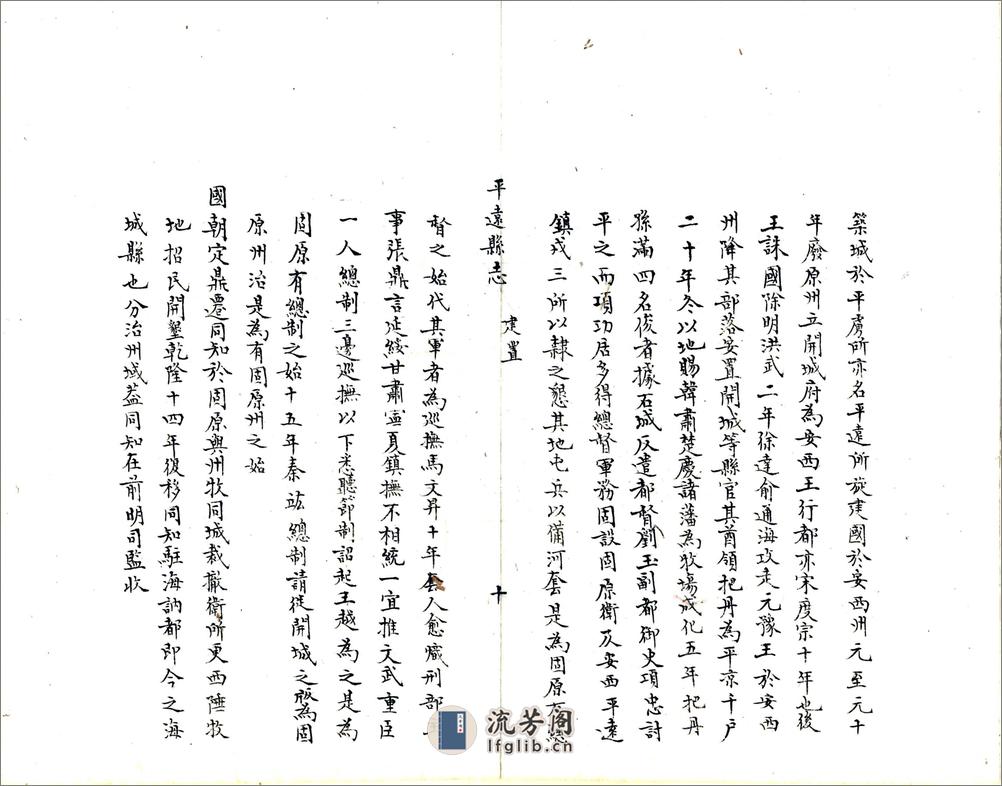 築城於平虜所亦名平遠所旋建國於安西州元至元十
年廢原州立開城府為安西王行都亦宋度宗十年也後
王誅國除明洪武二年徐達俞通海攻走元豫王於安西
州降其部落安置開城等縣官其酋領把丹為平凉千戶
二十年冬以地賜韓肅楚慶諸藩為牧場成化五年把丹
孫滿四名俊者據石城反遣都督劉玉副都御史項忠討
平之而項功居多得總督軍務固設固原衛及安西平遠
鎮戎三所以隸之懇其地屯兵以備河套是為固原有總
平遠縣志
建置
十
督之始代其軍者為巡撫馬文昇十年套人愈熾刑部
事張鼎言延綏甘肅寧夏鎮撫不相統一宜推文武重臣
一人總制三邊巡撫以下悉聽節制詔起王越為之是為
固原有總制之始十五年秦竑總制請徙開城之版為固
原州治是為有固原州之始
國朝定鼎遷同知於固原與州牧同城裁撤衛所更西陲牧
地招民開墾乾隆十四年復移同知駐海訥都即今之海
城縣也分治州域蓋同知在前明司監收
流芳阁
lfglib.cn